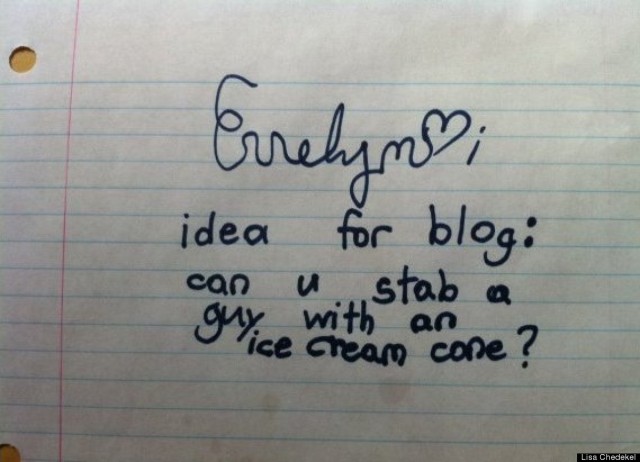 Errelyn♡i
idea for blog:
can u stab a
guy with an
ice cream cone?
Lisa Chedekel